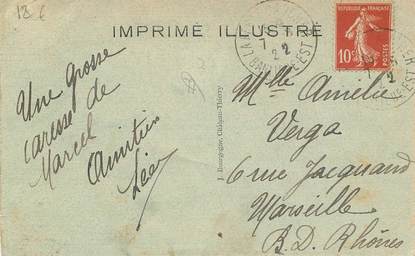 18 €
IMPRIMÉ ILLUSTRÉ
RÉPUBLIQUE FRANÇAISE
10c
POSTES
Une grosse
caresse de
Marcel
Amitiés
Léa
J. Bourgogne, Château-Thierry
Mlle Amelie
Verga
6 rue Jacquand
Marseille
B.D. Rhônes